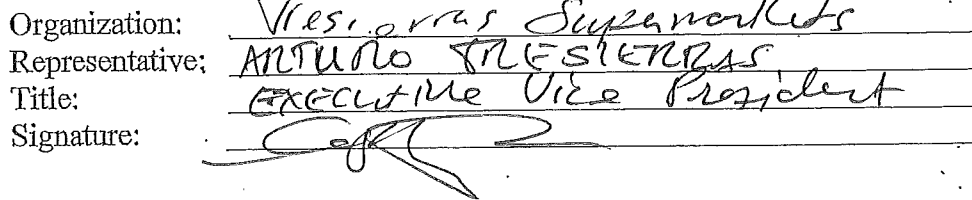 Organization: Tresierras Supermarkets
Representative: ARTURO TRESIERRAS
Title: EXECUTIVE Vice President
Signature: